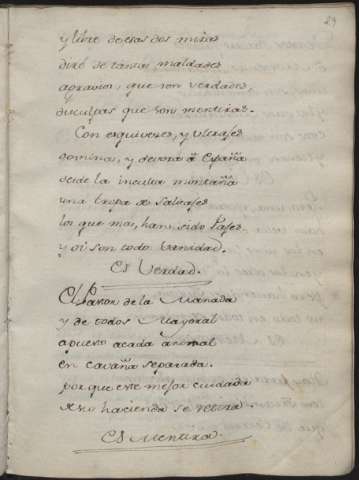 29
y libre de esas dos miras
diré de tantas maldades
agravios, que son verdades
disculpas que son mentiras.
Con esquivezes, y ultrajes
domina, y devora à España
desde la inculta montaña
una tropa de Salvajes
los que mas, han sido Pajes
y oi son todo Vanidad.
Es Verdad.
El Pastor de la Manada
y de todos Mayoral
a puesto acada animal
en cavaña separada.
porque este mejor cuidada
su hacienda se retira
Es Mentira.